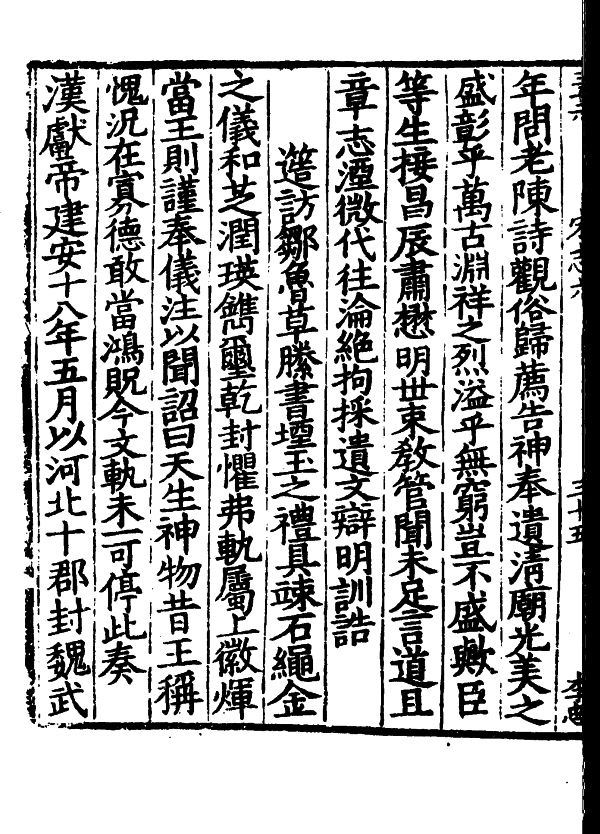 年問老陳詩觀俗歸薦告神奉遺清廟光美之
盛彰乎萬古淵祥之烈溢乎無窮豈不盛歟臣
等生接昌辰肅懋明世束教管聞未足言道且
章志湮微代往淪絕拘採遺文辯明訓誥
訪鄒魯草縢書堙玉之禮具竦石繩金
之儀和芝潤瑛鐫璽乾封懼弗軌屬上徽煇
當王則謹奉儀注以聞詔曰天生神物昔王稱
愧況在寡德敢當鴻貺今文軌未一可停此奏
漢獻帝建安十八年五月以河北十郡封魏武